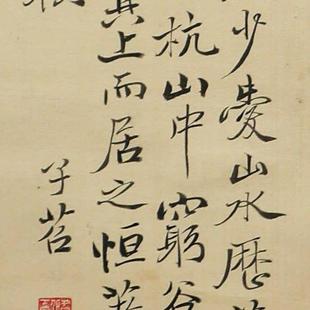 少愛山水歷
杭山中窮谷
其上而居之恒
子苕